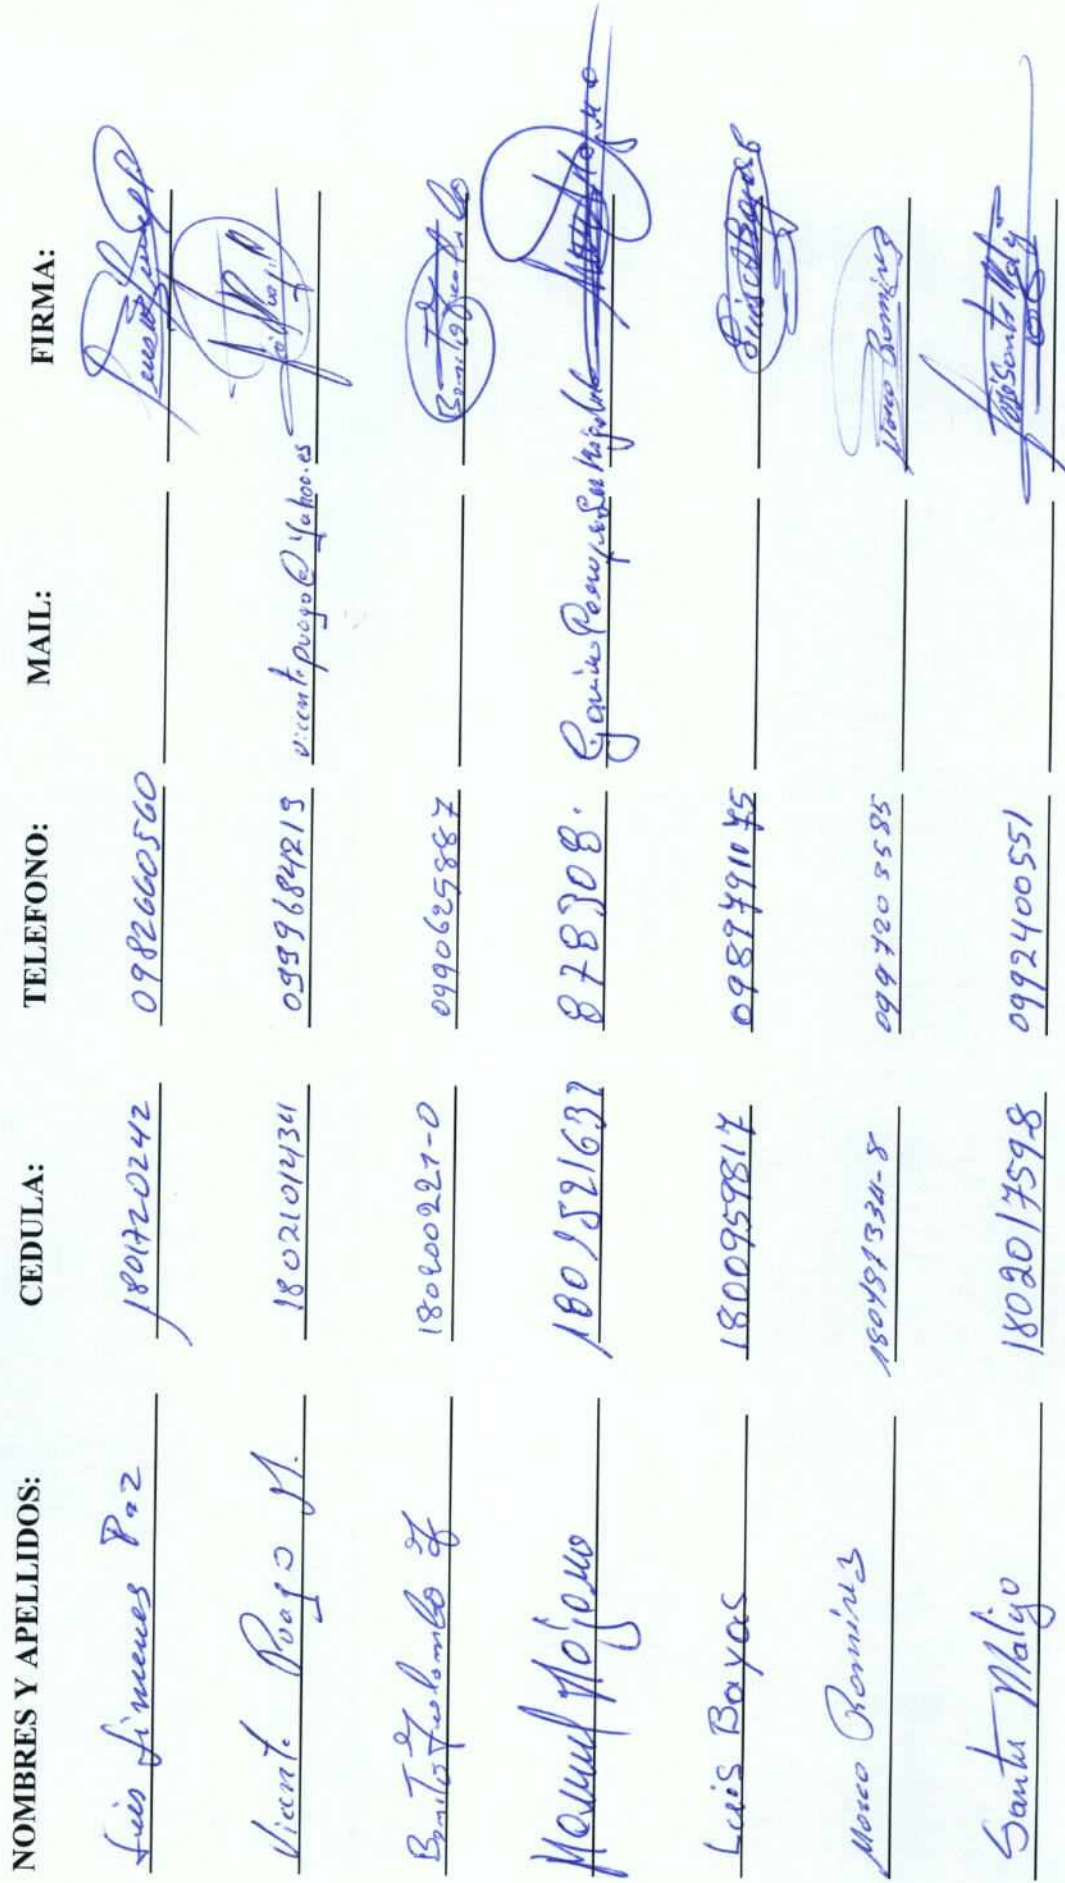 NOMBRES Y APELLIDOS: CEDULA: TELEFONO: MAIL: FIRMA:
Luis Jimenes Paz 1801720242 0982660560
Vicente Puago M. 1802101434 0999684219 vicentepuago@yahoo.es
180200221-0 0990625887
Manuel Mójomo 1801521637 878308.
Luis Bayas 1800959817 0989791075 Luis Bayas
Marco Ramírez 180491334-8 0997203585 Marco Ramírez
Santos Maliza 1802017598 0992400551